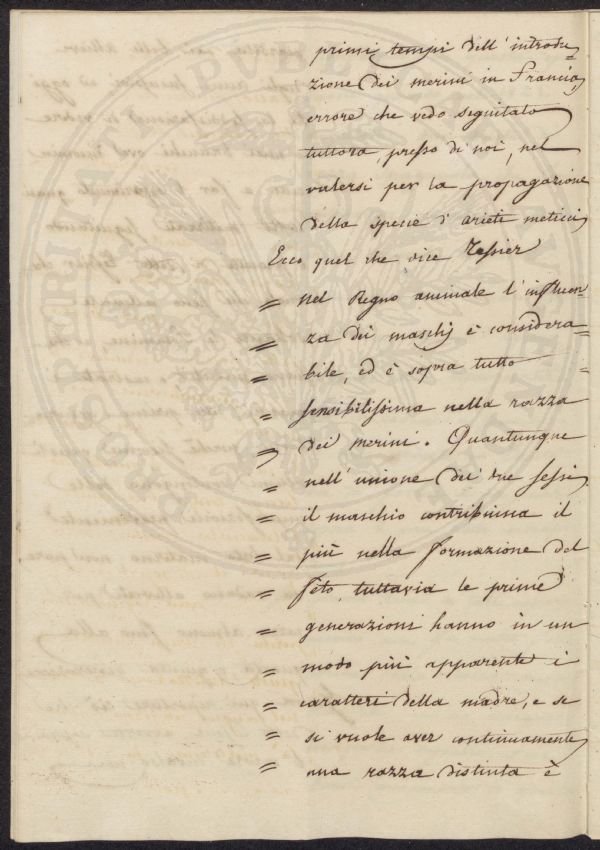 primi tempi dell' introdu=
zione dei merini in Francia,
errore che vedo seguitato
tuttora, presso di noi, nel
valersi per la propagazione
della specie d' arieti meticci
Ecco quel che dice Tessier
= Nel Regno animale l' influen=
= za dei maschj è considera=
= bile, ed è sopra tutto =
= sensibilissima nella razza
= dei merini. Quantunque
= nell' unione dei due sessi
= il maschio contribuisca il
= più nella formazione del
= feto, tuttavia le prime
= generazioni hanno in un
= modo più apparente i
= caratteri della madre, e se
= si vuole aver continuamente
= una razza distinta è